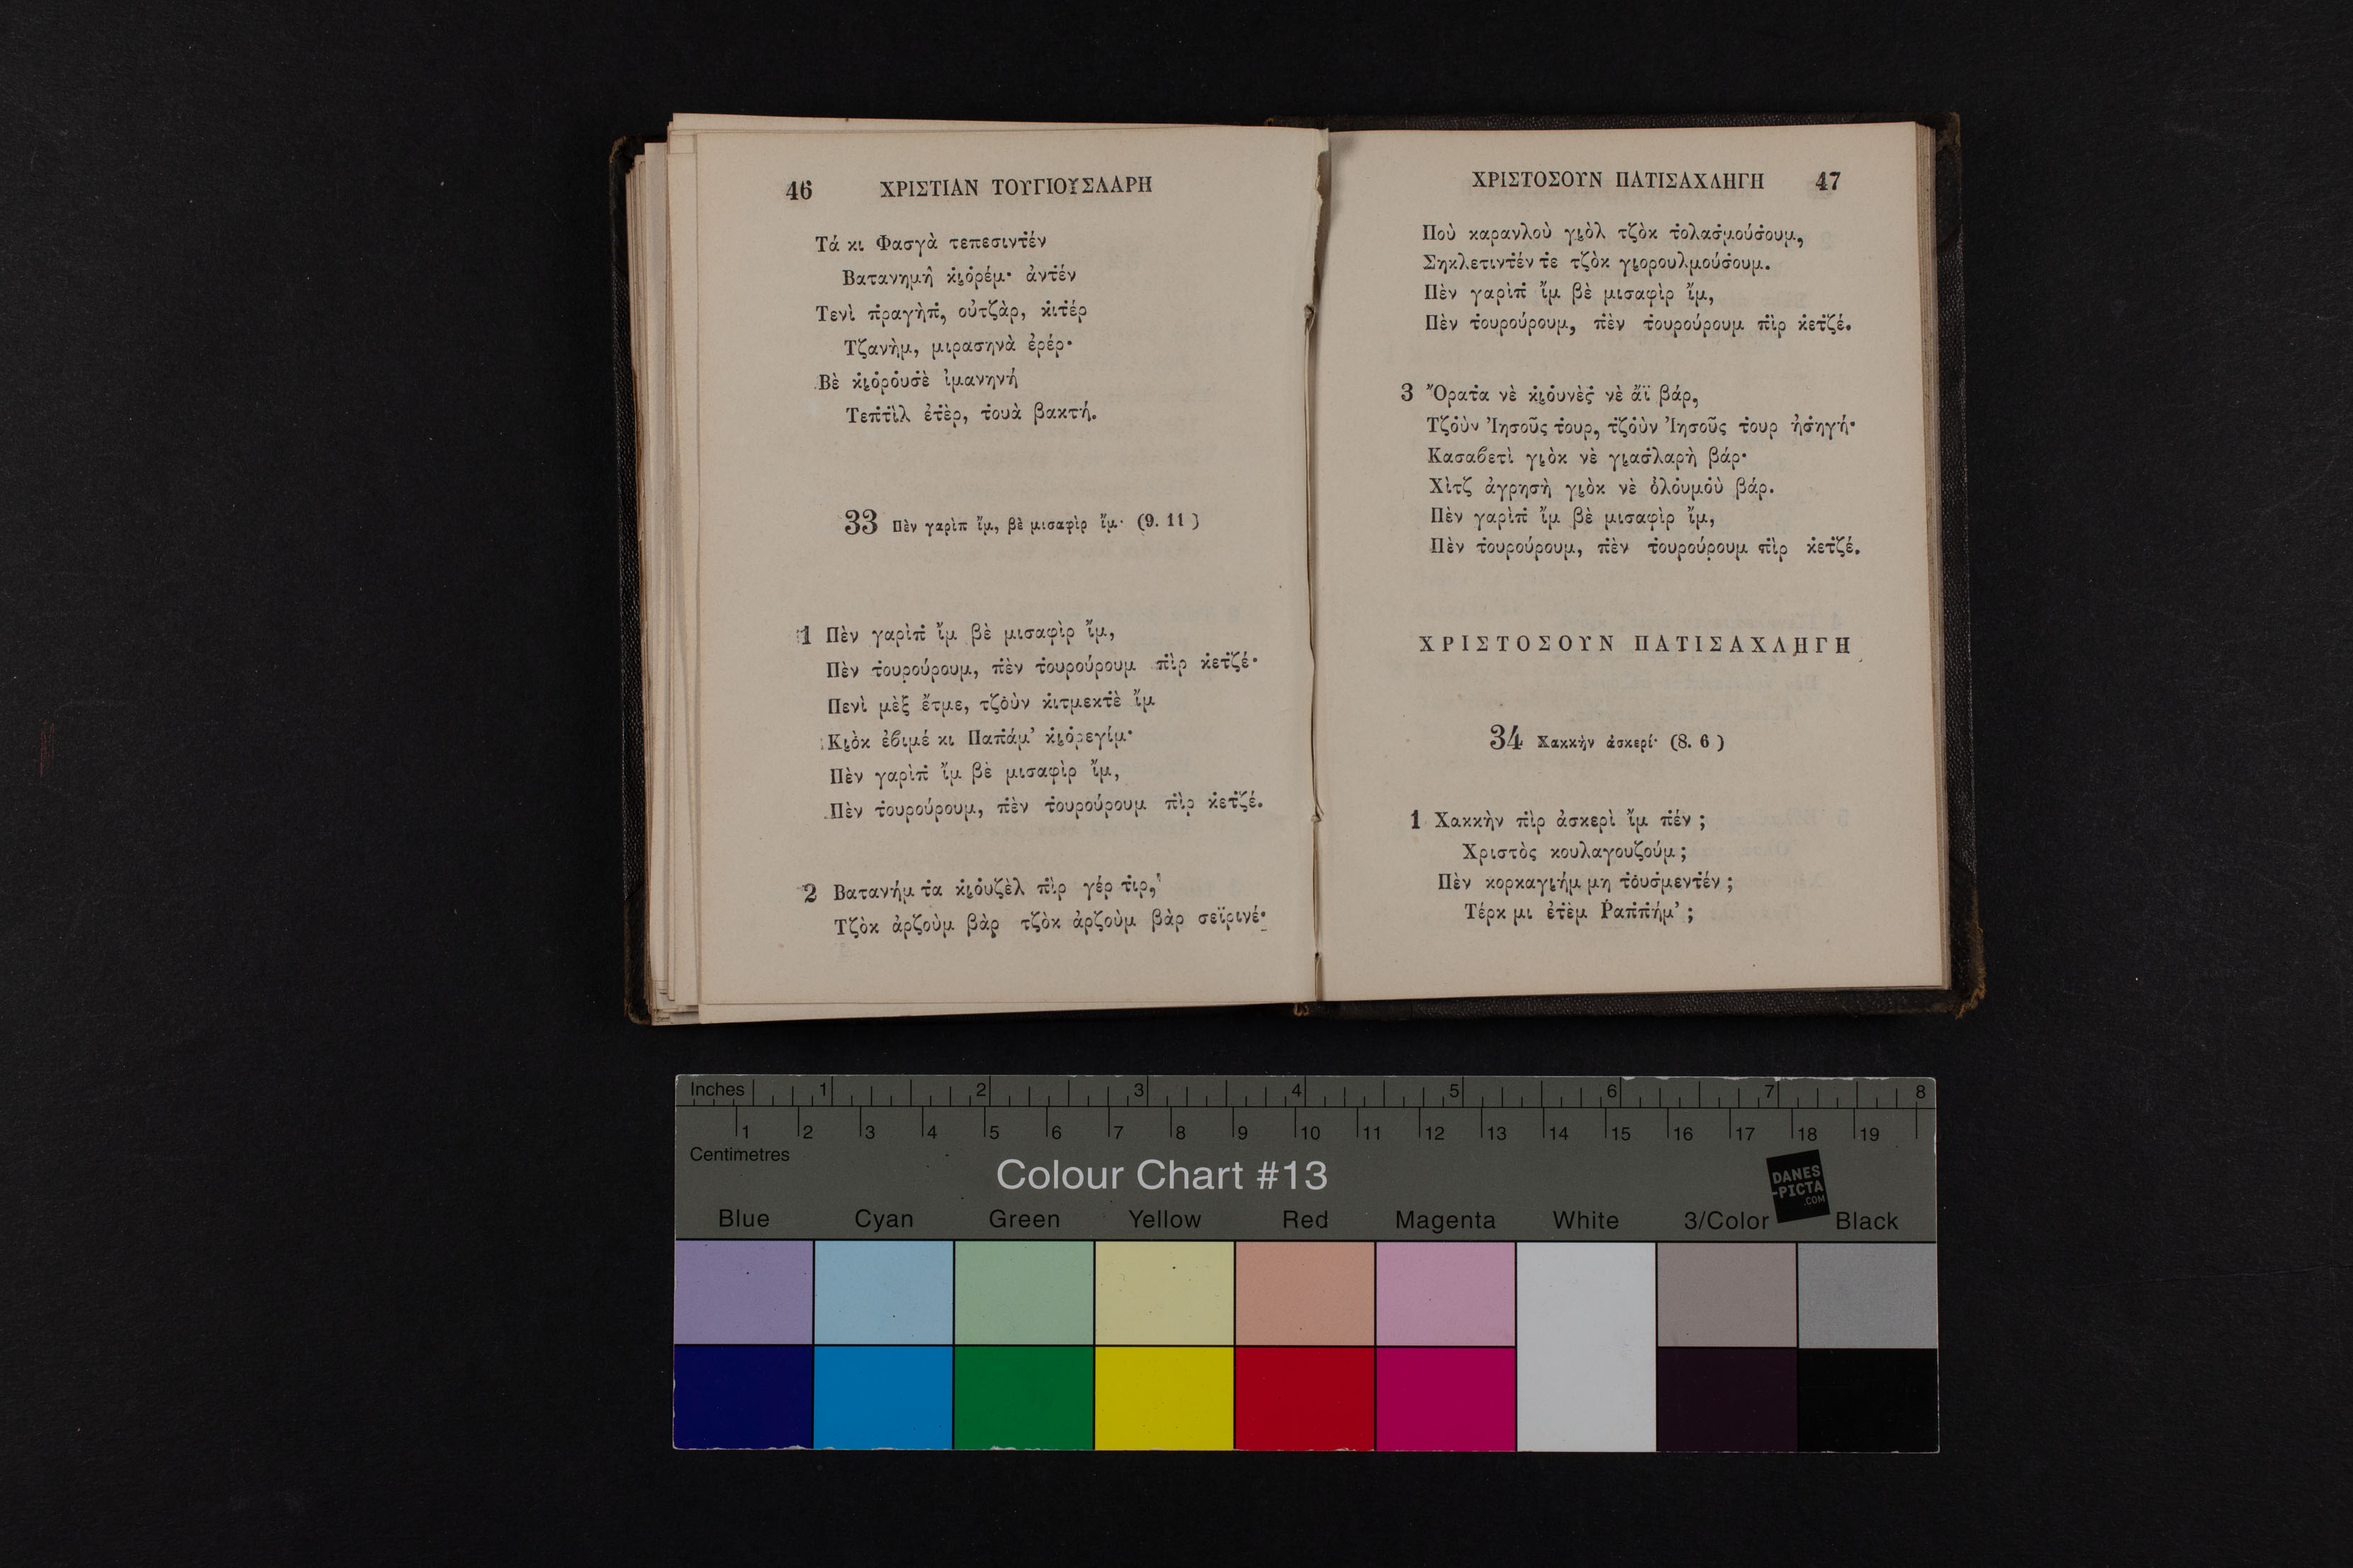 46 ΧΡΙΣΤΙΑΝ ΤΟΥΓΙΟΥΣΛΑΡΗ
Τά κι Φασγὰ τεπεσιντ̇έν
Βατανημὴ κ̇ι̮ὀρέμ· ἀντ̇έν
Τενὶ π̇ραγὴπ̇, οὐτζὰρ, κ̇ιτ̇έρ
Τζανὴμ, μιρασηνὰ ἐρέρ·
Βὲ κ̇ι̮ὀρὀυσ̇ὲ ἰμανηνή
Τεπ̇τ̇ὶλ ἐτ̇ὲρ, τ̇ουὰ βακτή.
33 Πὲν γαρὶπ ἴμ, βὲ μισαφὶρ ἴμ· (9. 11)
1 Πὲν γαρὶπ̇ ἴμ βὲ μισαφὶρ ἴμ,
Πὲν τ̇ουρούρουμ, π̇ὲν τ̇ουρούρουμ π̇ὶρ κ̇ετζ̇έ·
Πενὶ μὲξ ἔτμε, τζὀὺν κ̇ιτμεκτ̇ὲ ἴμ
Κι̮ὀκ ἐϐιμέ κι Παπ̇άμ’ κ̇ι̮ὀρεγίμ·
Πὲν γαρὶπ̇ ἴμ βὲ μισαφὶρ ἴμ,
Πὲν τ̇ουρούρουμ, π̇ὲν τ̇ουρούρουμ π̇ὶρ κ̇ετζ̇έ.
2 Βατανήμ τ̇α κ̇ι̮ὀυζὲλ π̇ὶρ γέρ τ̇ιρ,
Τζὸκ ἀρζοὺμ βὰρ τζὸκ ἀρζοὺμ βὰρ σεϊρινέ·
ΧΡΙΣΤΟΣΟΥΝ ΠΑΤΙΣΑΧΛΗΓΗ 47
Ποὺ καρανλοὺ γι̮ὸλ τζὸκ τ̇ολασ̇μούσ̇ουμ,
Σηκλετιντ̇έν τ̇ε τζὸκ γι̮ορουλμούσ̇ουμ.
Πὲν γαρὶπ̇ ἴμ βὲ μισαφὶρ ἴμ,
Πὲν τ̇ουρούρουμ, π̇ὲν τ̇ουρούρουμ π̇ὶρ κ̇ετζ̇έ.
3 Ὄρατ̇α νὲ κ̇ι̮ὀυνὲς̇ νὲ ἄϊ βάρ,
Τζὀὺν Ἰησοῦς τ̇ουρ, τζὀὺν Ἰησοῦς τ̇ουρ ἠσ̇ηγή·
Κασαϐετὶ γι̮ὸκ νὲ γι̮ασ̇λαρὴ βάρ·
Χὶτζ ἀγρησὴ γι̮ὸκ νὲ ὀλὀυμὀὺ βάρ.
Πὲν γαρὶπ̇ ἴμ βὲ μισαφὶρ ἴμ,
Πὲν τ̇ουρούρουμ, π̇ὲν τ̇ουρούρουμ π̇ὶρ κ̇ετζ̇έ.
ΧΡΙΣΤΟΣΟΥΝ ΠΑΤΙΣΑΧΛΗΓΗ
34 Χακκὴν ἀσκερί· (8. 6)
1 Χακκὴν π̇ὶρ ἀσκερὶ ἴμ π̇έν ;
Χριστὸς κουλαγουζούμ ;
Πὲν κορκαγι̮ήμ μη τ̇ὀυσ̇μεντ̇έν ;
Τέρκ μι ἐτ̇ὲμ Ῥαπ̇π̇ήμ’ ;
Inches 1 2 3 4 5 6 7 8
1 2 3 4 5 6 7 8 9 10 11 12 13 14 15 16 17 18 19
Centimetres
Colour Chart #13
DANES
-PICTA
.COM
Blue Cyan Green Yellow Red Magenta White 3/Color Black